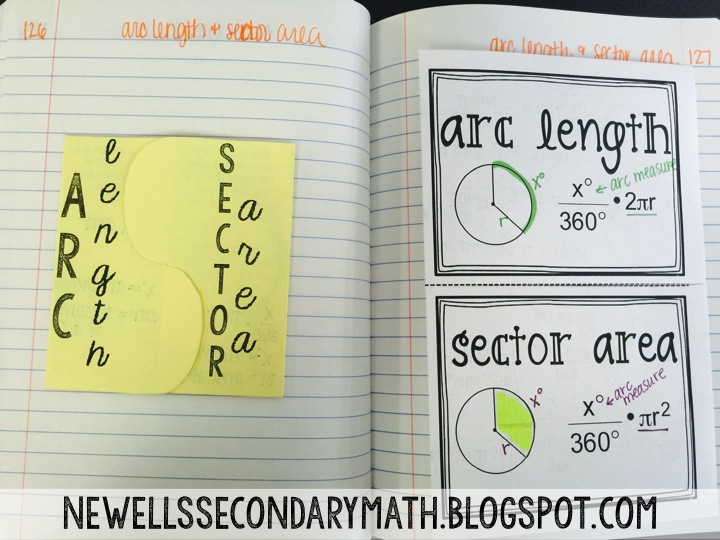 126
arc length & sector area
ARC
length
SECTOR
area
arc length & sector area 127
arc length
x°
r
x°
360°
← arc measure
• 2πr
sector area
x°
r
x°
360°
← arc measure
• πr²
NEWELLSSECONDARYMATH.BLOGSPOT.COM